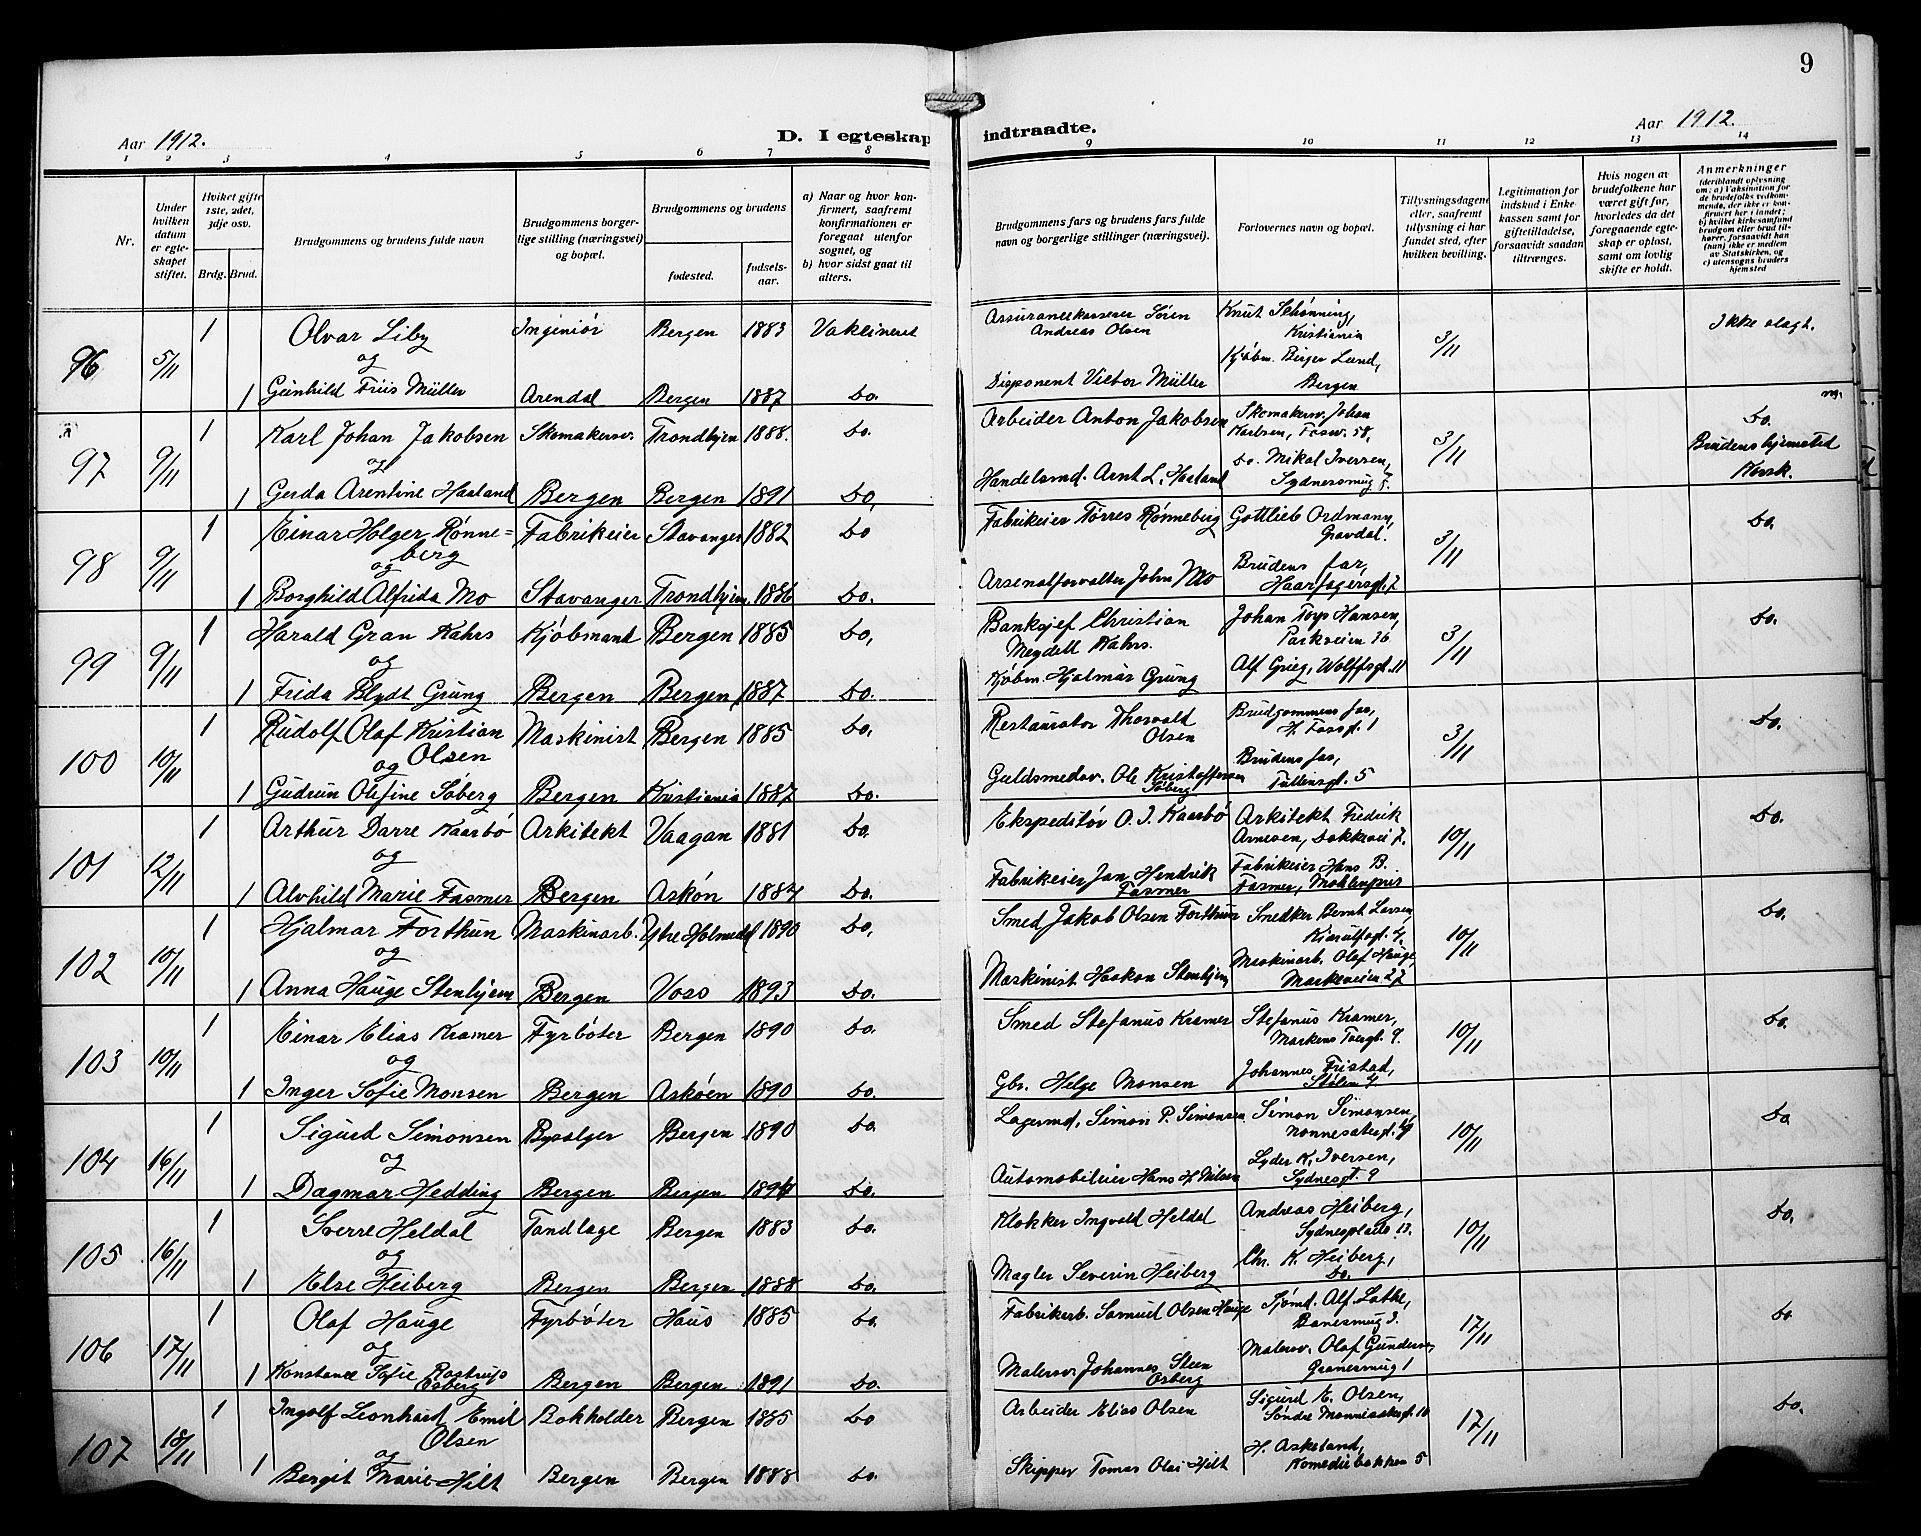 9
Aar 1912.
D. I egteskap indtraadte.
Aar 1912.
1 2 3 4 5 6 7 8 9 10 11 12 13 14
Nr.
Under hvilken datum er egteskapet stiftet.
Hvilket gifte 1ste, 2det, 3dje osv.
Brdg. Brud.
Brudgommens og brudens fulde navn
Brudgommens borgerlige stilling (næringsvei) og bopæl.
Brudgommens og brudens
fødested. fødselsaar.
a) Naar og hvor konfirmert, saafremt konfirmationen er foregaat utenfor sognet, og
b) hvor sidst gaat til alters.
Brudgommens fars og brudens fars fulde navn og borgerlige stillinger (næringsvei).
Forlovernes navn og bopæl.
Tillysningsdagene eller, saafremt tillysning ei har fundet sted, efter hvilken bevilling.
Legitimation for indskud i Enkekassen samt for giftetilladelse, forsaavidt saadan tiltrænges.
Hvis nogen av brudefolkene har været gift før, hvorledes da det foregaaende egteskap er opløst, samt om lovlig skifte er holdt.
Anmerkninger
(deriblandt oplysning om: a) Vaksination for de brudefolks vedkommende, der ikke er konfirmert her i landet; b) hvilket kirkesamfund brudgom eller brud tilhører, forsaavidt han (hun) ikke er medlem av Statskirken, og c) utensogns bruders hjemsted
96 5/11 1 Olvar Liby Ingeniør Bergen 1883 Vakcineret Assurancekasserer Søren Andreas Olsen Knut Schønning, Kristiania 3/11 Ikke slagt.
og Kjøbm. Birger Lund, Bergen
1 Gunhild Friis Müller Arendal Bergen 1887 Do. Disponent Victor Müller
97 9/11 1 Karl Johan Jakobsen Skomakersv. Trondhjem 1888. Do. Arbeider Anton Jakobsen Skomakersv. Johan Karlsen, Fosw. 58. 3/11 Do. Brudens hjemsted Korsk.
og Do. Mikal Iversen, Sydnessmug 5.
1 Gerda Arentine Haaland Bergen Bergen 1891 Do, Handelsmd. Arnt L. Haaland
98 9/11 1 Einar Holger Rønneberg Fabrikeier Stavanger 1882 Do Fabrikeier Tørres Rønneberg Gottlieb Ordmann, Gravdal. 3/11 Do.
og Brudens far, Haarfagersgt. 7
1 Borghild Alfrida Mo Stavanger Trondhjem. 1886 Do. Arsenalforvalter John Mo
99 9/11 1 Harald Gran Kahrs Kjøbmand Bergen 1885 Do, Banksjef Christian Meydell Kahrs. Johan Thys Hansen, Parkveien 16 3/11 Do.
og Alf Grieg, Wolffsgt. 11
1 Frida Blydt Grung Bergen Bergen 1887 Do. Kjøbm. Hjalmar Grung
100 10/11 1 Rudolf Olaf Kristian Olsen Maskinist Bergen 1885 Do, Restauratør Thorvald Olsen Brudgommens far, H. Fossgt. 1 3/11 Do.
og Brudens far, Tullinsgt. 5
1 Gudrun Olefine Søberg Bergen Kristiania 1887 Do. Guldsmedsv. Ole Kristoffersen Søberg
101 12/11 1 Arthur Darre Kaarbø Arkitekt Vaagan 1881 Do. Ekspeditør O. J. Kaarbø Arkitekt Fredrik Arnesen, Dokkevei 7. 10/11 Do.
og Fabrikeier Hans B. Fasmer, Møhlenpris
1 Alvhild Marie Fasmer Bergen Askøn 1884 Do. Fabrikeier Jan Hendrik Fasmer
102 10/11 1 Hjalmar Forthun Maskinarb. Ytre Holmedal 1890 Do, Smed Jakob Olsen Forthun Snedker Bernt Larsen, Kiærulfsgt. 4. 10/11 Do.
og Maskinarb. Olaf Hauge, Markeveien 27
1 Anna Hauge Stenhjem Bergen Voss 1893 Do. Maskinist Haakon Stenhjem
103 10/11 1 Einar Elias Kramer Fyrbøter Bergen 1890 Do. Smed Stefanus Kramer Stefanus Kramer, Markens Tvergt. 9. 10/11 Do.
og Johannes Fristad, Stølen 4
1 Inger Sofie Monsen Bergen Askøen 1890 Do. Gbr. Helge Monsen
104 16/11 1 Sigurd Simonsen Bysælger Bergen 1890 Do. Lagermd, Simon P. Simonsen Simon Simonsen, Nonnesætergt. 49 10/11 Do
og Lyder K. Iversen, Sydnesgt. 9
1 Dagmar Hedding Bergen Bergen 1894 Do. Automobileier Hans H. Nilsen
105 16/11 1 Sverre Heldal Tandlæge Bergen 1883 Do. Klokker Ingvald Heldal Andreas Heiberg, Sydnesplass 13. 10/11 Do.
og Chr. K. Heiberg, Do.
1 Else Heiberg Bergen Bergen 1888 Do. Mægler Severin Heiberg
106 17/11 1 Olaf Hauge Fyrbøter Haus 1885 Do. Fabrikarb. Samuel Olsen Hauge Sjømd. Alf Lothe, Banesmug 3. 17/11 Do
og Malersv. Olaf Gundersen, Granesmug 1
1 Konstance Sofie Rostrups Osberg Bergen Bergen 1891 Do. Malersv. Johannes Steen Osberg
107 18/11 1 Ingolf Leonhard Emil Olsen Bokholder Bergen 1885 Do Arbeider Elias Olsen Sigurd E. Olsen, Søndre Nonnesætergt. 10 17/11 Do.
og H. Askeland, Komediebakken 5
1 Bergit Marie Hilt Bergen Bergen 1888 Do. Skipper Tomas Olai Hilt